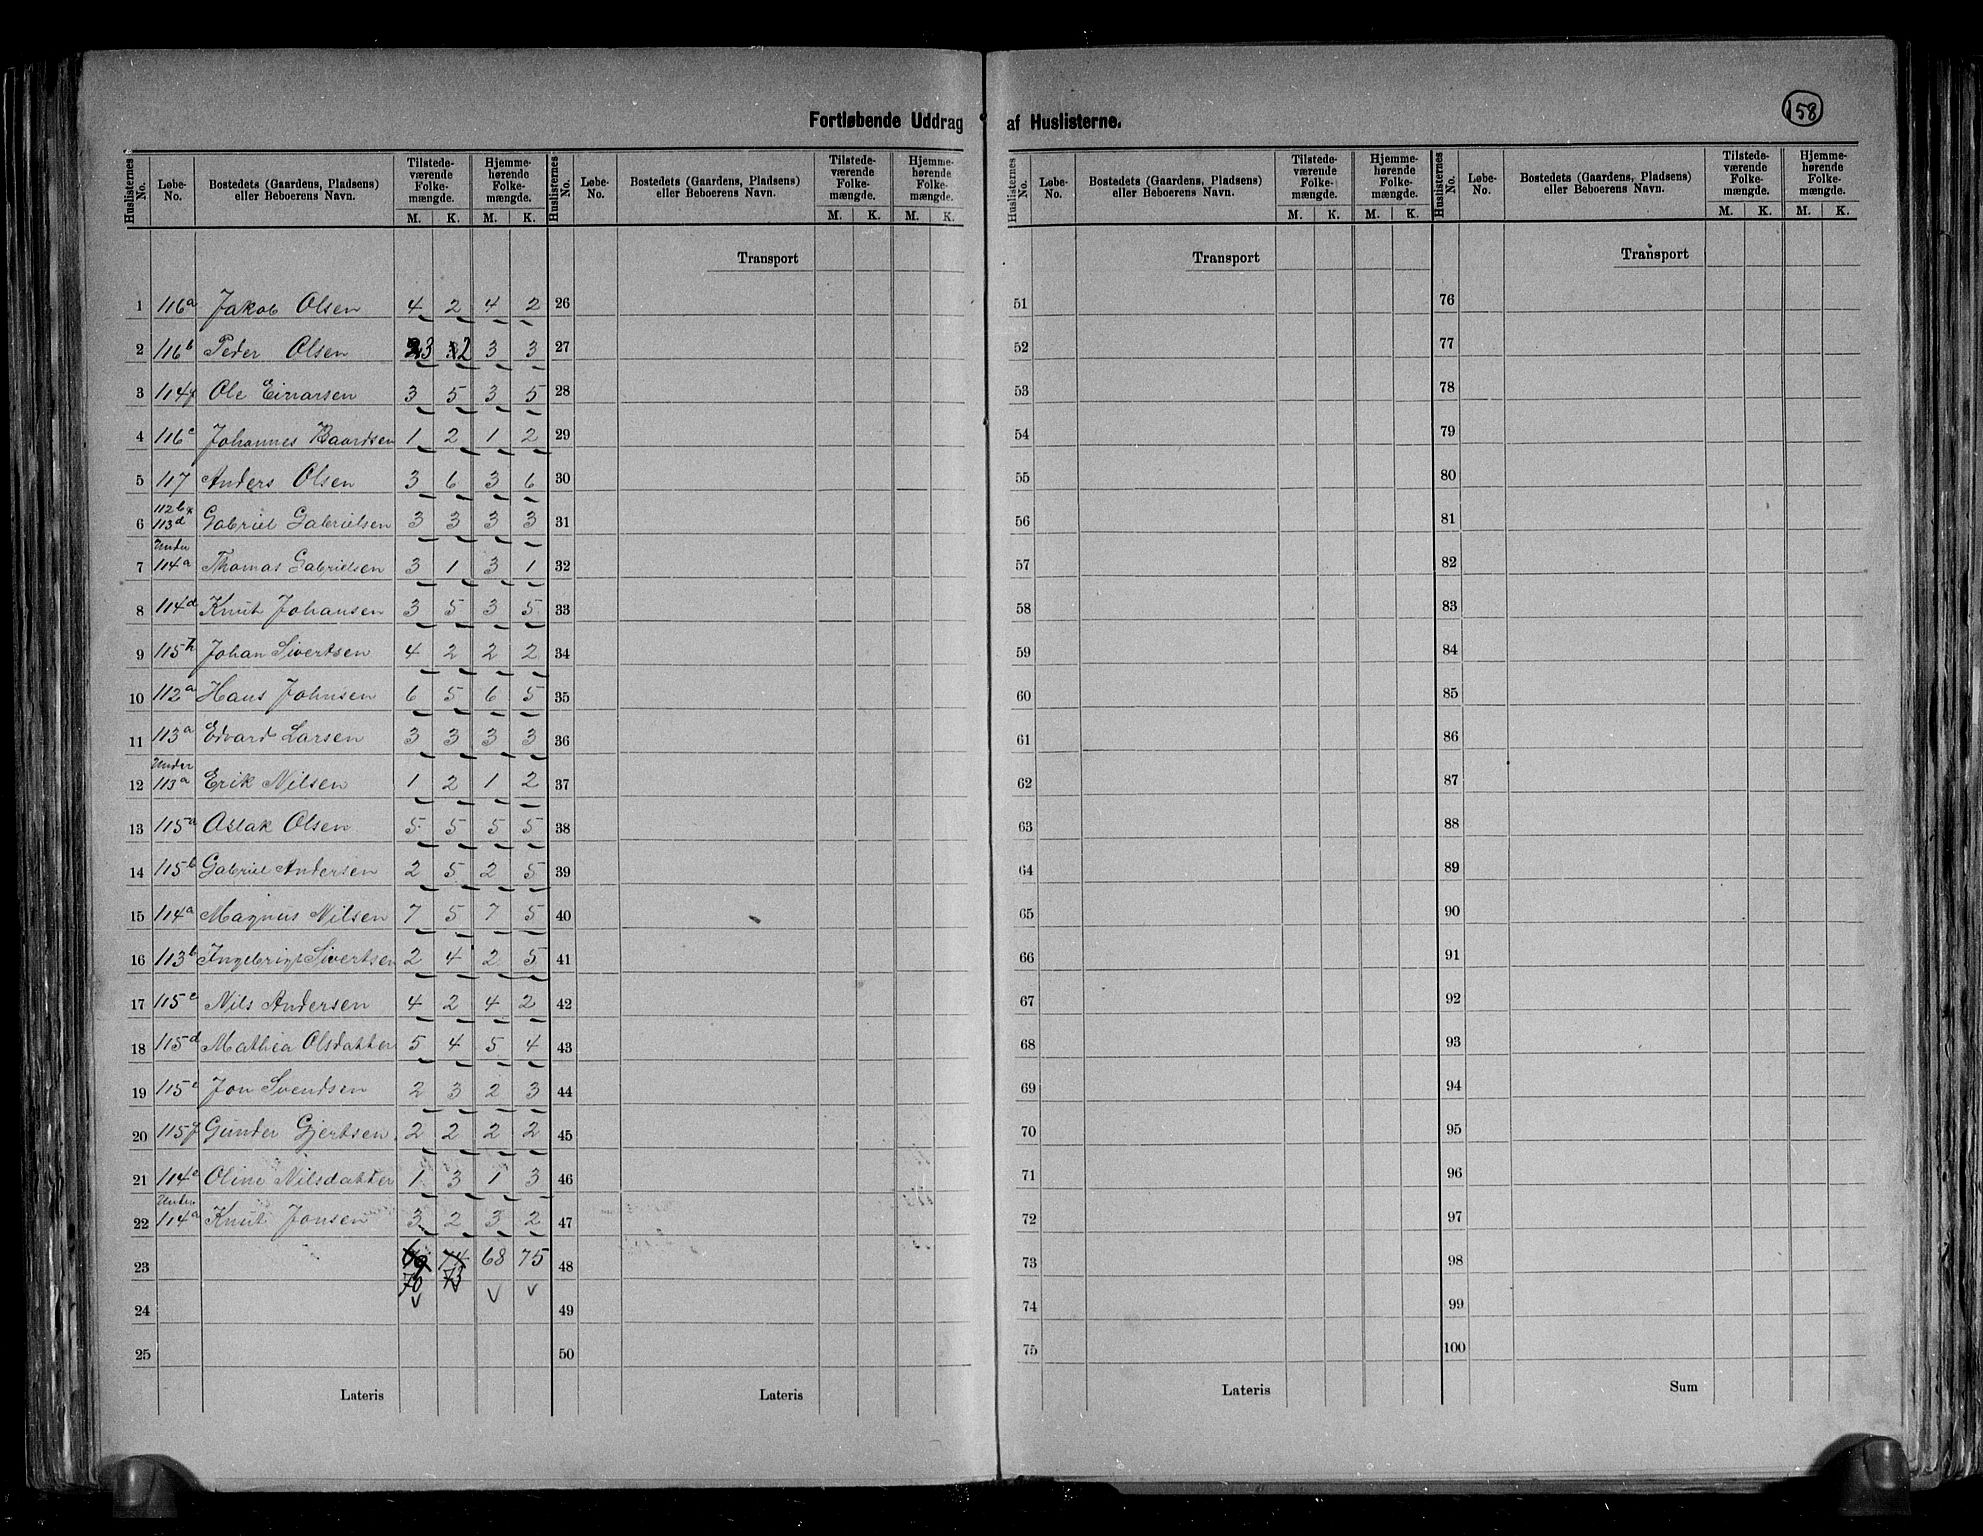 Fortløbende Uddrag af Huslisterne.
158
Huslisternes No. Løbe-No. Bostedets (Gaardens, Pladsens) eller Beboerens Navn. Tilstedeværende Folkemængde. M. K. Hjemmehørende Folkemængde. M. K.
Huslisternes No. Løbe-No. Bostedets (Gaardens, Pladsens) eller Beboerens Navn. Tilstedeværende Folkemængde. M. K. Hjemmehørende Folkemængde. M. K.
Huslisternes No. Løbe-No. Bostedets (Gaardens, Pladsens) eller Beboerens Navn. Tilstedeværende Folkemængde. M. K. Hjemmehørende Folkemængde. M. K.
Huslisternes No. Løbe-No. Bostedets (Gaardens, Pladsens) eller Beboerens Navn. Tilstedeværende Folkemængde. M. K. Hjemmehørende Folkemængde. M. K.
Transport Transport Transport
1 116a Jakob Olsen 4 2 4 2 26 51 76
2 116b Peder Olsen 3 2 3 3 27 52 77
3 114f Ole Einarsen 3 5 3 5 28 53 78
4 116c Johannes Baardsen 1 2 1 2 29 54 79
5 117 Anders Olsen 3 6 3 6 30 55 80
6 112b & 113d Gabriel Gabrielsen 3 3 3 3 31 56 81
7 Under 114a Thomas Gabrielsen 3 1 3 1 32 57 82
8 114d Knut Johansen 3 5 3 5 33 58 83
9 115h Johan Sivertsen 4 2 2 2 34 59 84
10 112a Hans Johnsen 6 5 6 5 35 60 85
11 113a Edvard Larsen 3 3 3 3 36 61 86
12 Under 113a Erik Nilsen 1 2 1 2 37 62 87
13 115a Aslak Olsen 5 5 5 5 38 63 88
14 115b Gabriel Andersen 2 5 2 5 39 64 89
15 114a Magnus Nilsen 7 5 7 5 40 65 90
16 113b Ingebrigt Sivertsen 2 4 2 5 41 66 91
17 115c Nils Andersen 4 2 4 2 42 67 92
18 115d Mathea Olsdatter 5 4 5 4 43 68 93
19 115e Jon Svendsen 2 3 2 3 44 69 94
20 115f Gunder Gjertsen 2 2 2 2 45 70 95
21 114e Oline Nilsdatter 1 3 1 3 46 71 96
22 Under 114a Knut Jonsen 3 2 3 2 47 72 97
23 69 74 68 75 48 73 98
70 73
24 49 74 99
25 50 75 100
Lateris Lateris Lateris Sum